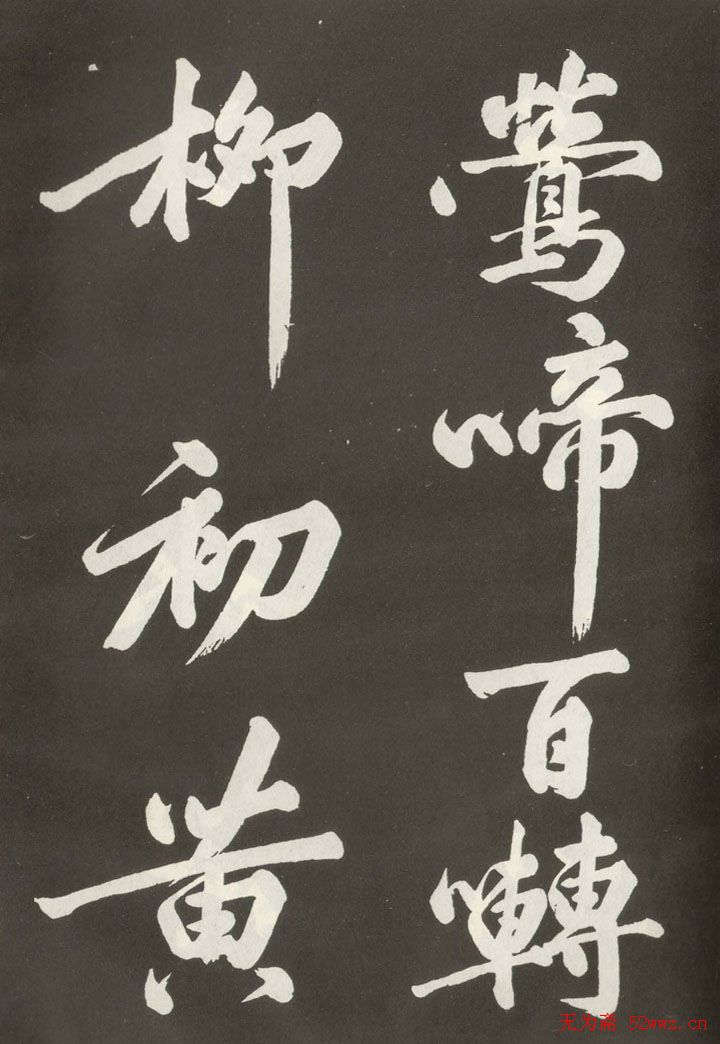 鶯啼百囀
柳初黄
无为斋 52wwz.cn